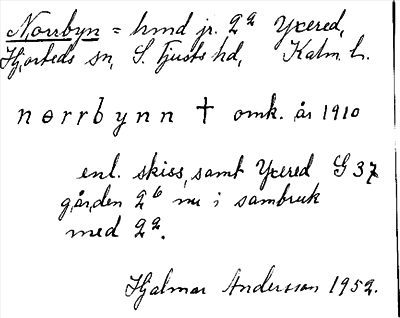 Norrbyn = hmd jr. 2ᵃ Yxered,
Hjorteds sn, S. Tjusts hd, Kalm. l.
nørrbynn † omk. år 1910
enl. skiss, samt Yxered G 37
gården 2ᵇ nu i sambruk
med 2ᵃ.
Hjalmar Andersson 1952.